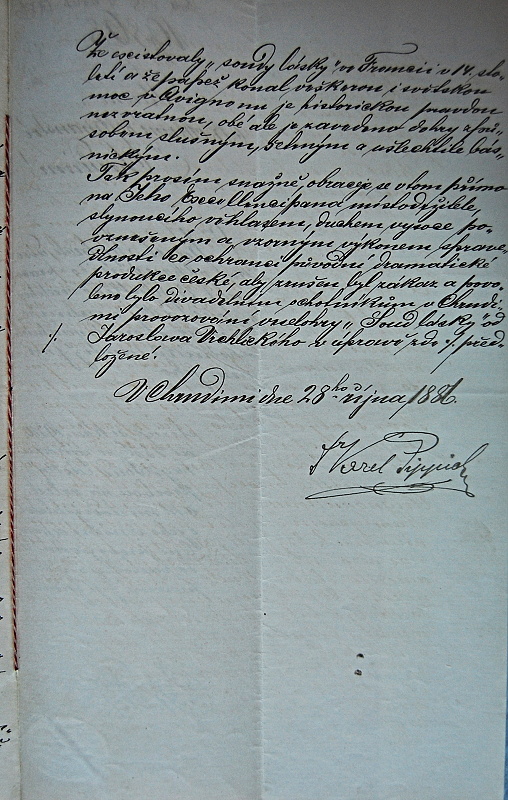 Že existovaly „soudy lásky" ve Francii v 14. sto-
letí a že papež konal veškerou i světskou
moc v Avignonu je historickou pravdou
nezvratnou, obé ale je zavedeno dobry způ-
sobem slušným, jemným a ušlechtile bás-
nickým.
Tak prosím snažně, obraceje se v tom přímo
na Jeho Excellenci pana místodržitele,
slynoucího věhlasem, duchem vysoce po-
vznešeným a vzorným výkonem sprave-
dlnosti co ochranci původní dramatické
produkce české, aby zrušen byl zákaz a povo-
leno bylo divadelním ochotníkům v Chrudi-
mi provozování veselohry „Soud lásky" od
Jaroslava Vrchlického v úpravě zde ⁒ před-
⁒ ložené.
V Chrudimi dne 28ho října 1886.
Dr Karel Pippich